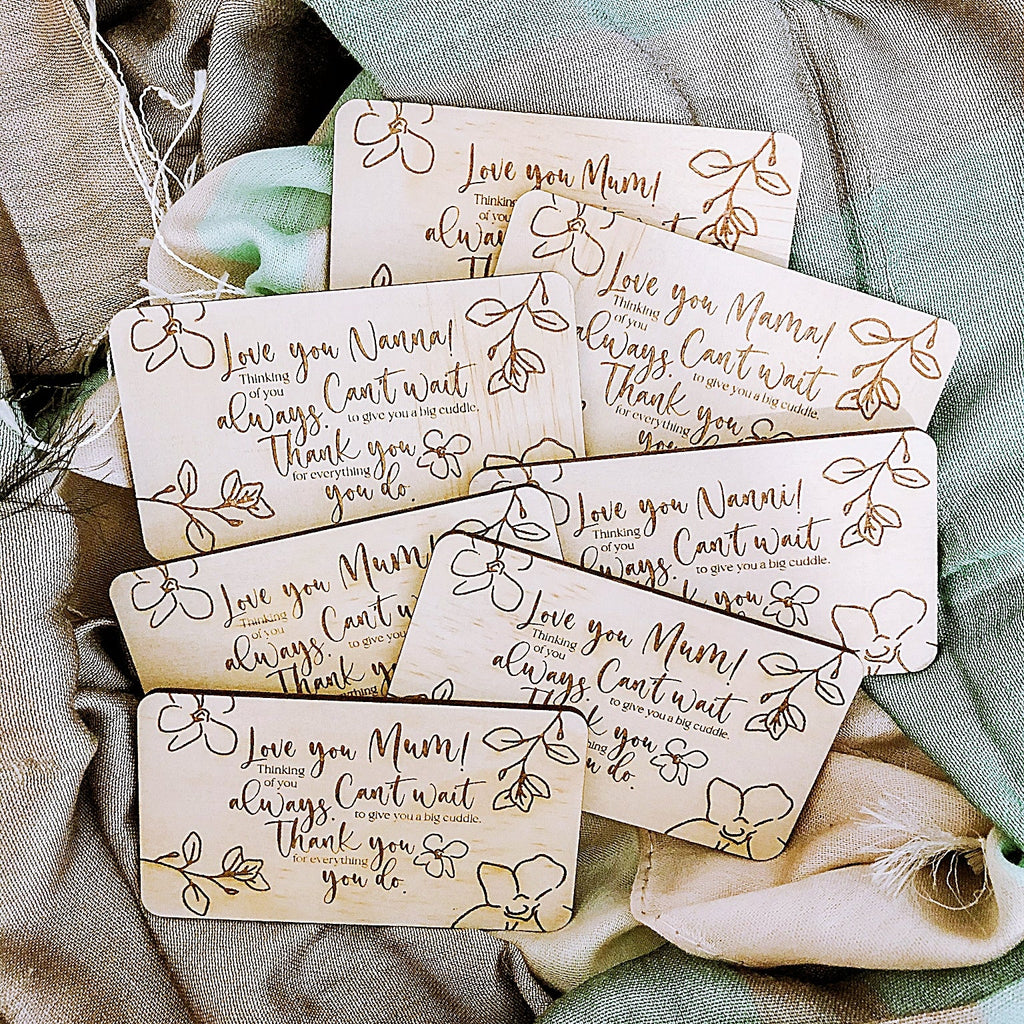 Love you Mum!
Thinking
of you
always.
Love you Mama!
Thinking
of you
always. Can't wait
to give you a big cuddle.
Thank you
for everything
you do.
Love you Nanna!
Thinking
of you
always. Can't wait
to give you a big cuddle.
Thank you
for everything
you do.
Love you Nanni!
Thinking
of you
always. Can't wait
to give you a big cuddle.
you
Love you Mum!
Thinking
of you
always. Can't w
to give you
Thank yo
everything
Love you Mum!
Thinking
of you
always. Can't wait
to give you a big cuddle.
you
do.
Love you Mum!
Thinking
of you
always. Can't wait
to give you a big cuddle.
Thank you
for everything
you do.